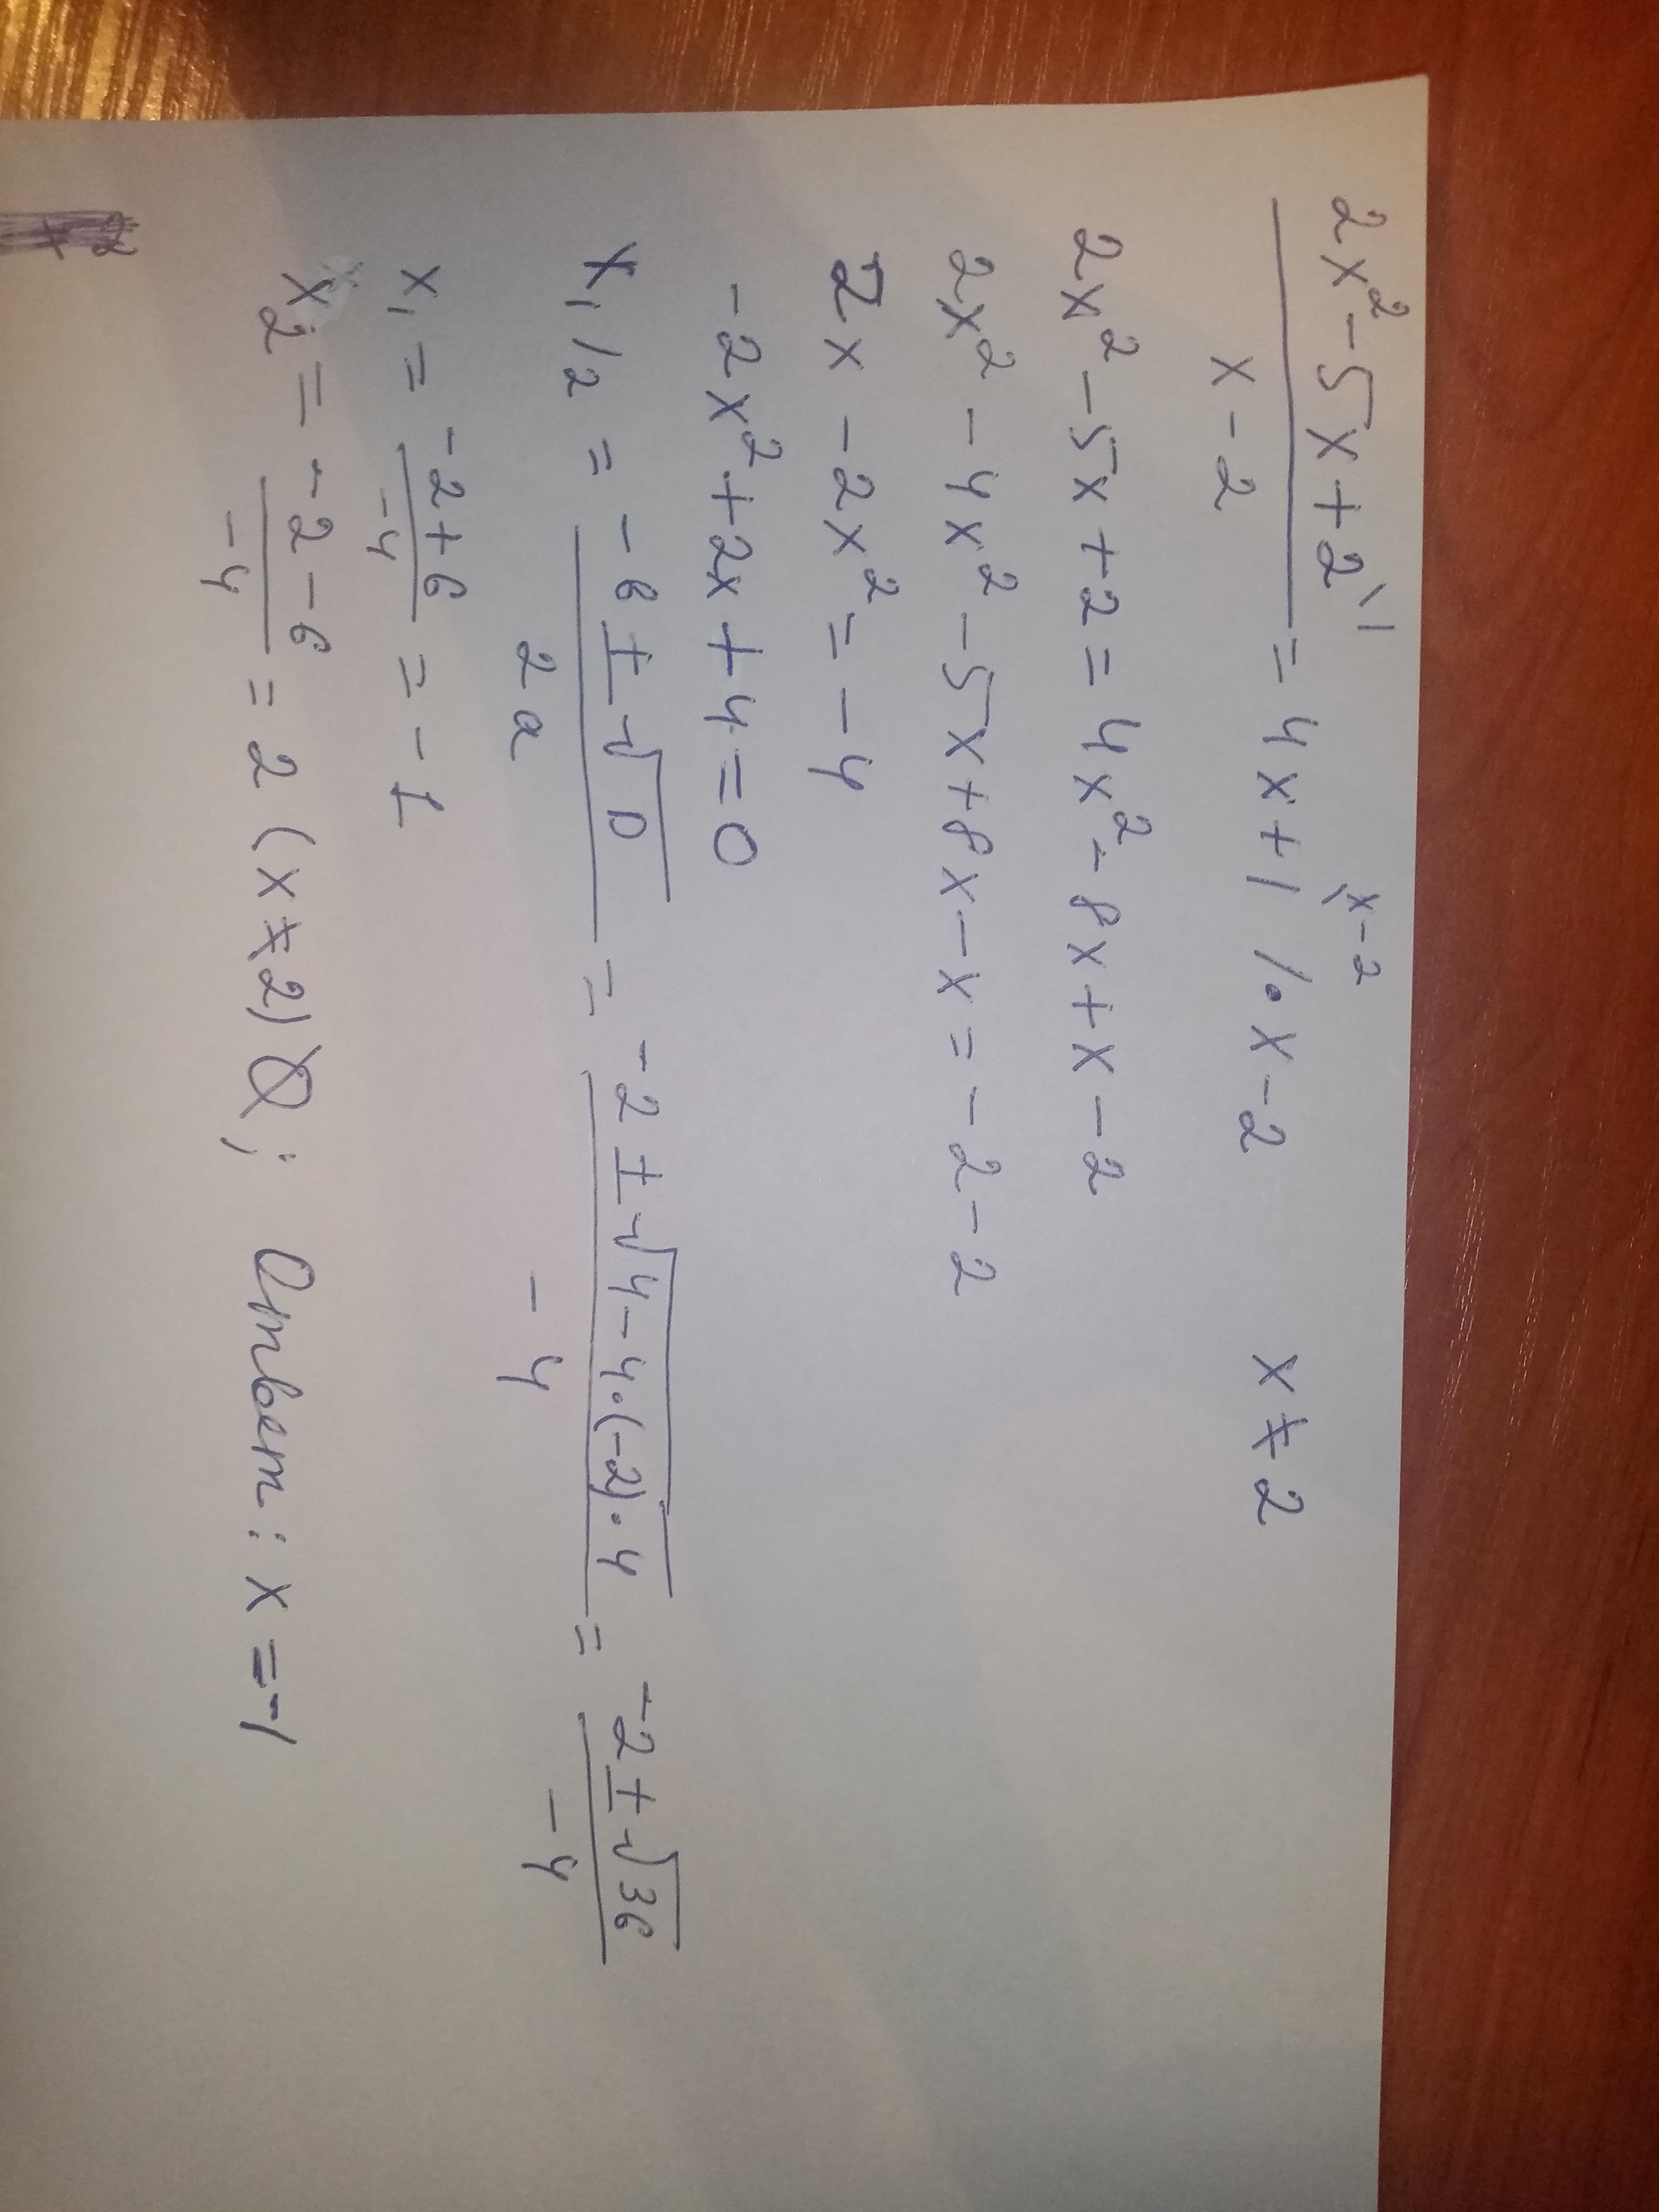 2x² - 5x + 2 \1 / x - 2 = 4x + 1 \x-2 / · x - 2 x ≠ 2
2x² - 5x + 2 = 4x² - 8x + x - 2
2x² - 4x² - 5x + 8x - x = - 2 - 2
2x - 2x² = - 4
- 2x² + 2x + 4 = 0
x₁/₂ = (- в ± √D) / 2a = (-2 ± √(4 - 4·(-2)·4)) / - 4 = (-2 ± √36) / - 4
x₁ = (-2 + 6) / -4 = - 1
x₂ = (-2 - 6) / -4 = 2 (x ≠ 2) Ø; Ответ: x = -1